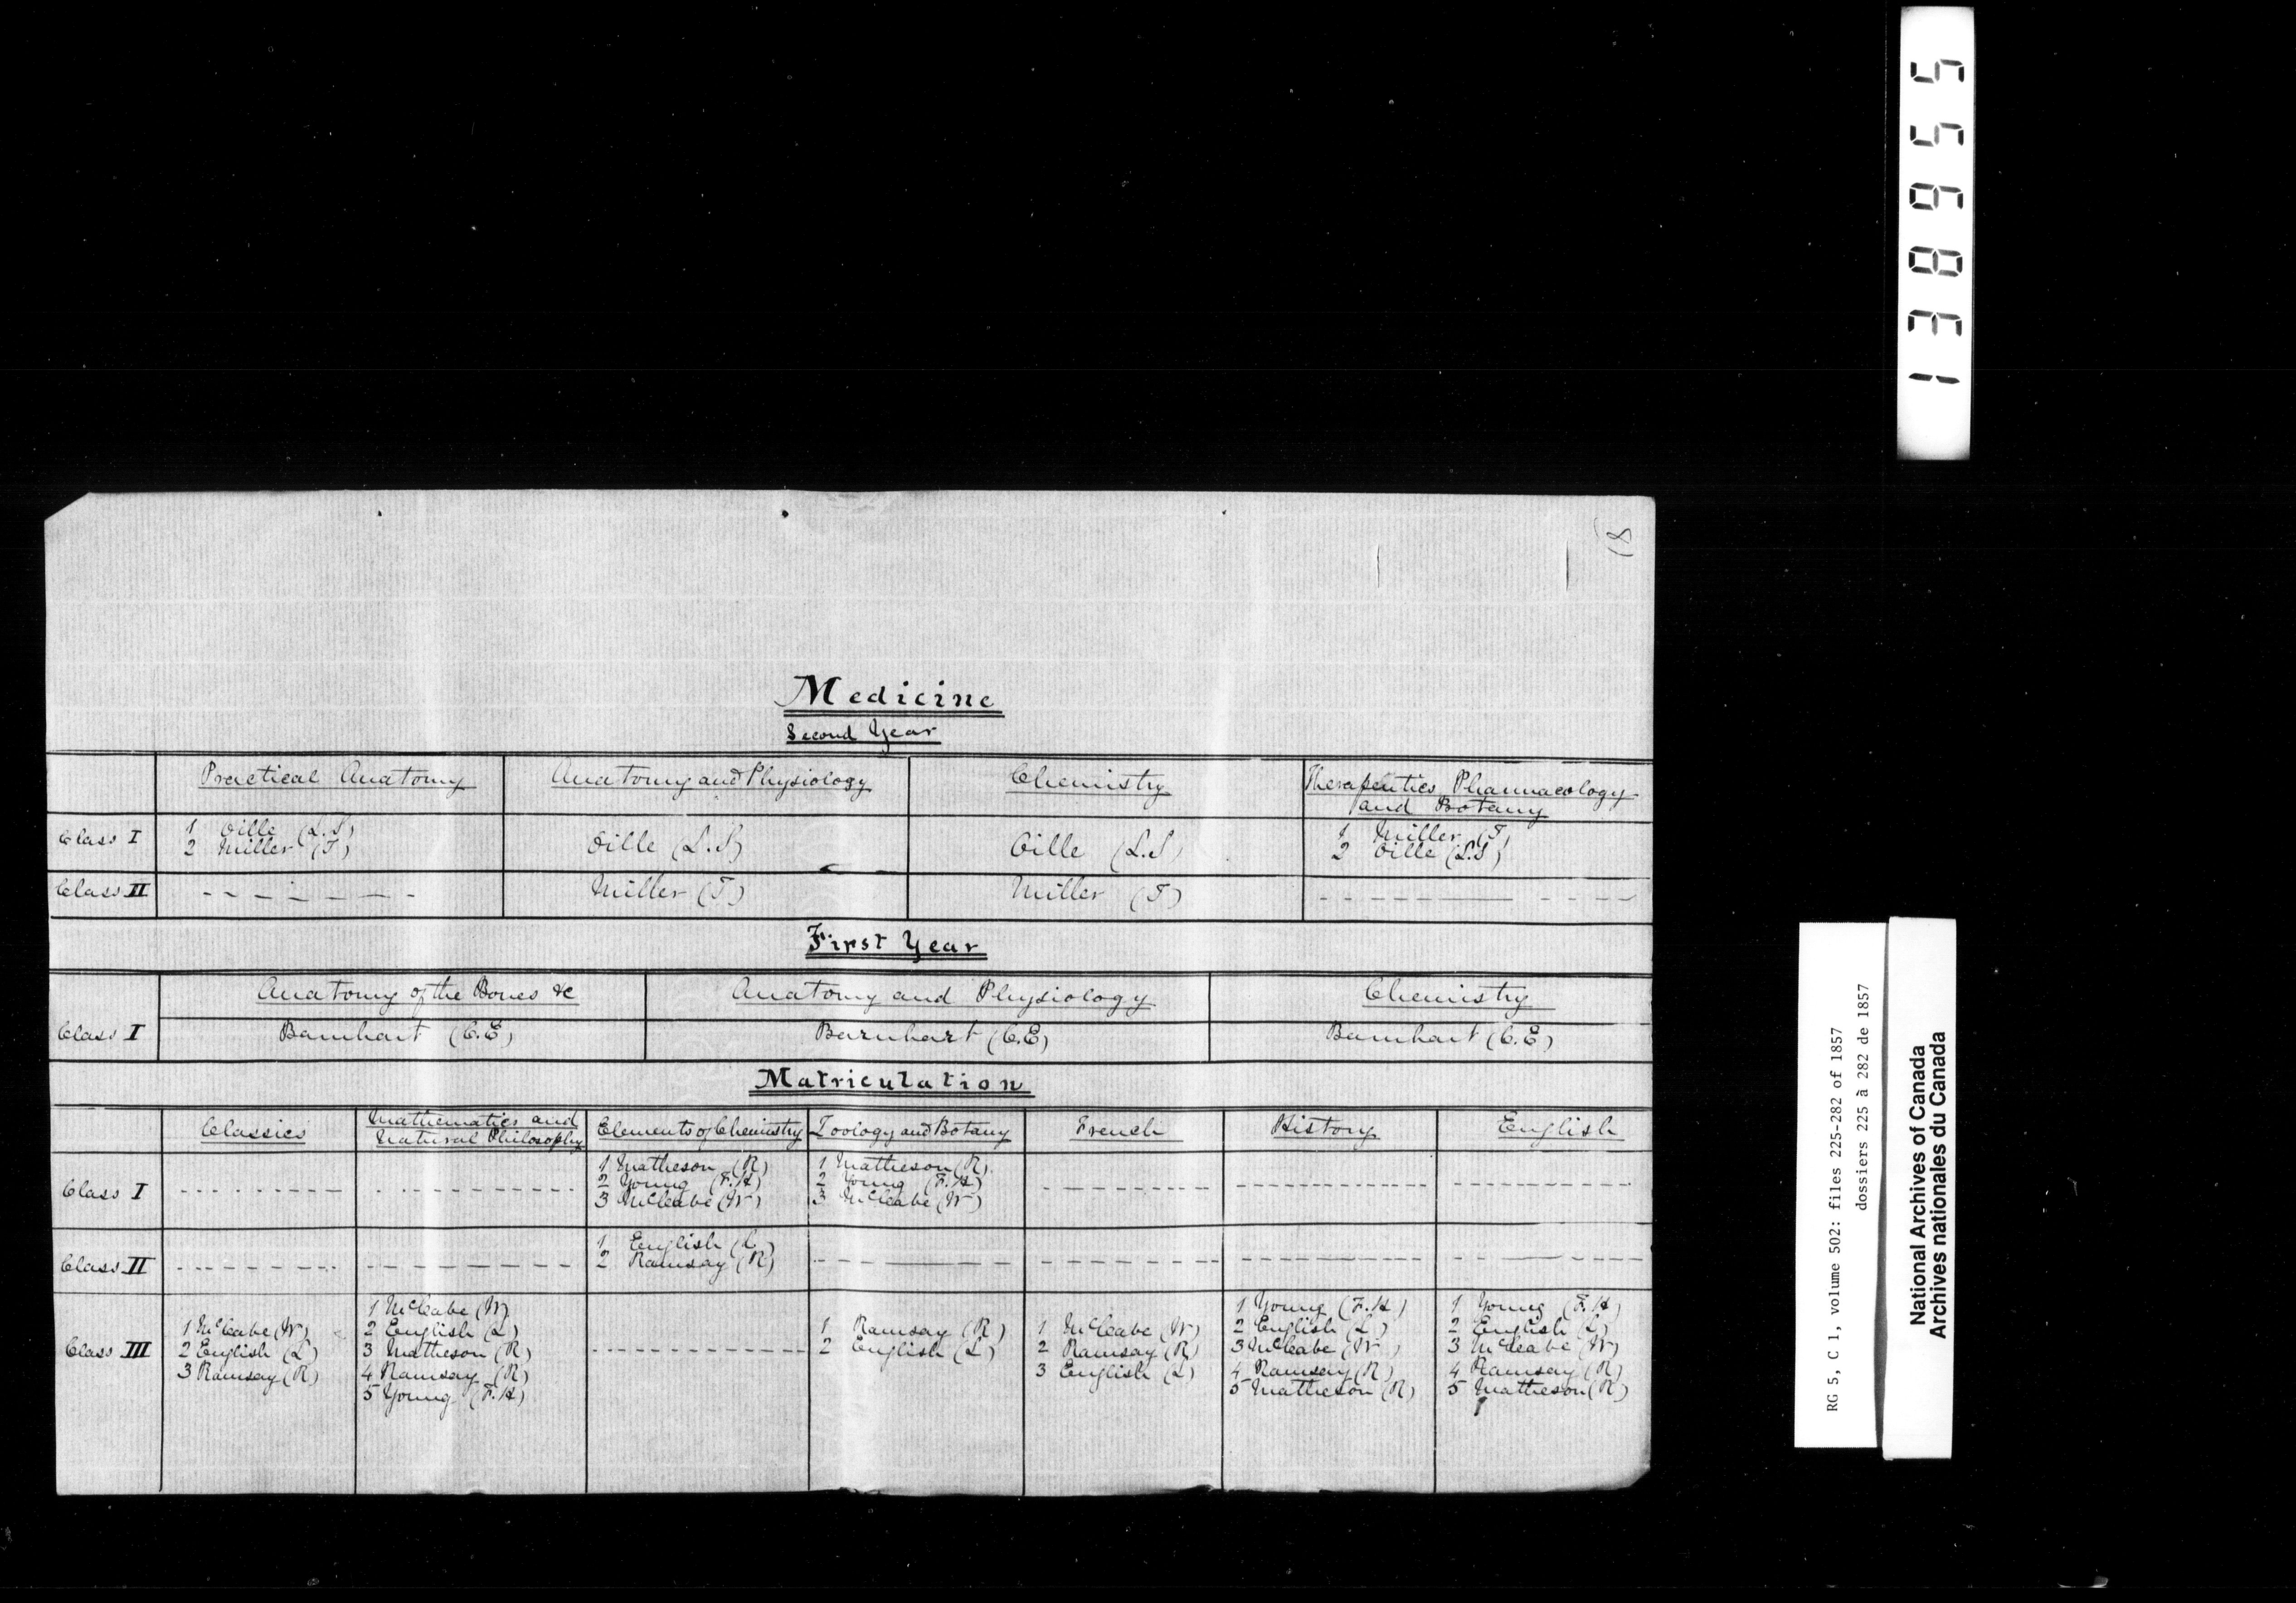 138955
18
Medicine
Second Year
Practical Anatomy
Anatomy and Physiology
Chemistry
Therapeutics, Pharmacology
and Botany
Class I
1 Oille (L.S)
2 Miller (T)
Oille (L.S)
Oille (L.S)
1 Miller (T)
2 Oille (L.S)
Class II
Miller (T)
Miller (T)
First Year
Anatomy of the Bones &c
Anatomy and Physiology
Chemistry
Class I
Barnhart (C.E)
Barnhart (C.E)
Barnhart (C.E)
Matriculation
Classics
Mathematics and
Natural Philosophy
Elements of Chemistry
Zoology and Botany
French
History
English
Class I
1 Matheson (R)
2 Young (F.H)
3 McCabe (W)
1 Matheson (R)
2 Young (F.H)
3 McCabe (W)
Class II
1 English (L)
2 Ramsay (R)
Class III
1 McCabe (W)
2 English (L)
3 Ramsay (R)
1 McCabe (W)
2 English (L)
3 Matheson (R)
4 Ramsay (R)
5 Young (F.H)
1 Ramsay (R)
2 English (L)
1 McCabe (W)
2 Ramsay (R)
3 English (L)
1 Young (F.H)
2 English (L)
3 McCabe (W)
4 Ramsay (R)
5 Matheson (R)
1 Young (F.H)
2 English (L)
3 McCabe (W)
4 Ramsay (R)
5 Matheson (R)
RG 5, C 1, volume 502: files 225-282 of 1857
dossiers 225 à 282 de 1857
National Archives of Canada
Archives nationales du Canada